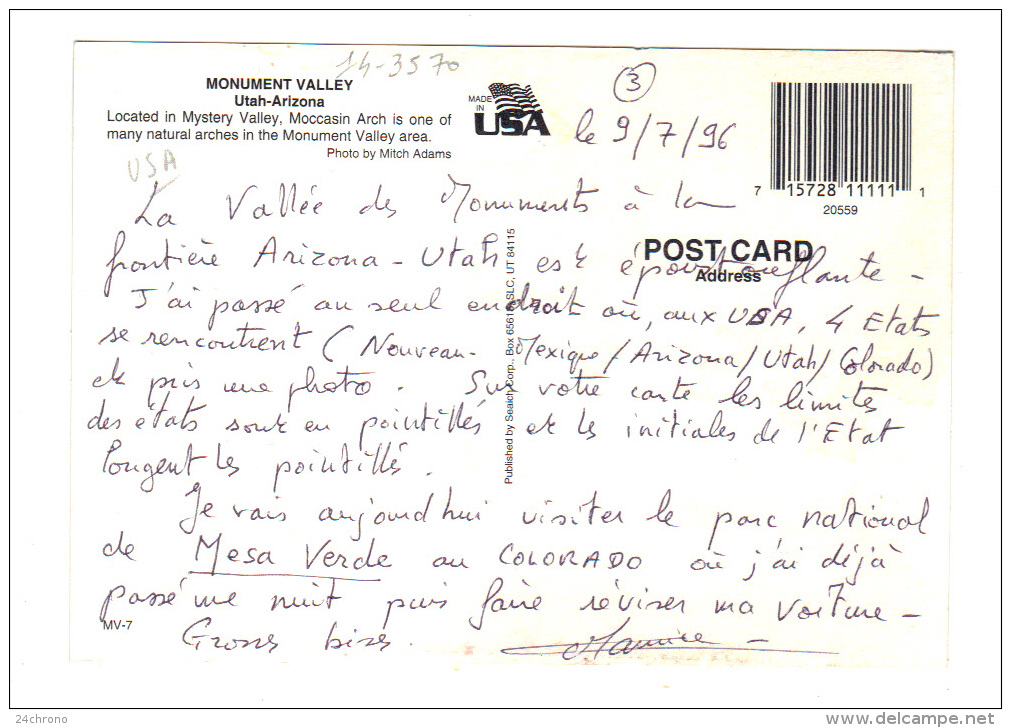 14-3570
MONUMENT VALLEY
Utah-Arizona
Located in Mystery Valley, Moccasin Arch is one of
many natural arches in the Monument Valley area.
Photo by Mitch Adams
USA
MADE
IN
USA
3
le 9/7/96
7 15728 11111 1
20559
POST CARD
Address
La Vallée des Monuments à la
frontière Arizona - Utah est époustouflante -
J'ai passé au seul endroit où, aux USA, 4 Etats
se rencontrent (Nouveau-Mexique/Arizona/Utah/Colorado)
et pris une photo. Sur votre carte les limites
des états sont en pointillés et les initiales de l'Etat
longent les pointillés.
Je vais aujourd'hui visiter le parc national
de Mesa Verde au COLORADO où j'ai déjà
passé une nuit puis faire réviser ma voiture -
Grosses bises.
Published by Seaich Corp., Box 65618, SLC, UT 84115
MV-7
24chrono
delcampe.net